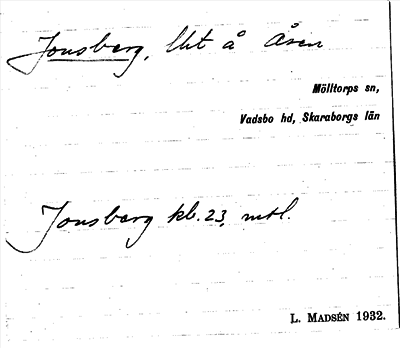 Jonsberg, lht å Åsen
Mölltorps sn,
Vadsbo hd, Skaraborgs län
Jonsberg kb. 23, mtl.
L. MADSÉN 1932.